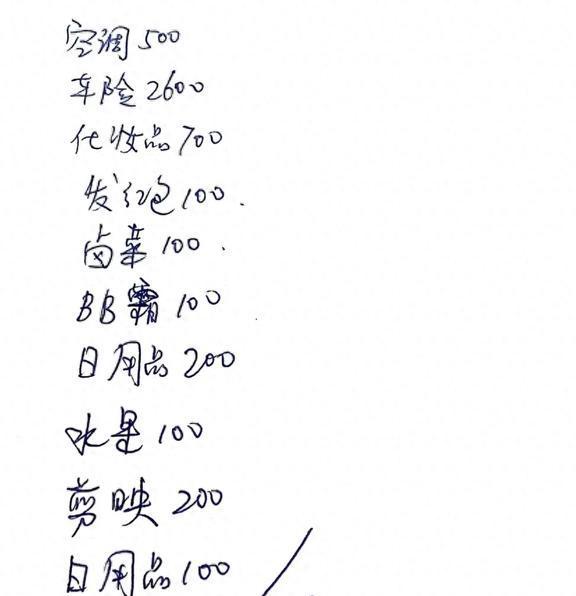 空调 500
车险 2600
化妆品 700
发红包 100.
卤菜 100.
BB霜 100
日用品 200
水星 100
剪映 200
日用品 100